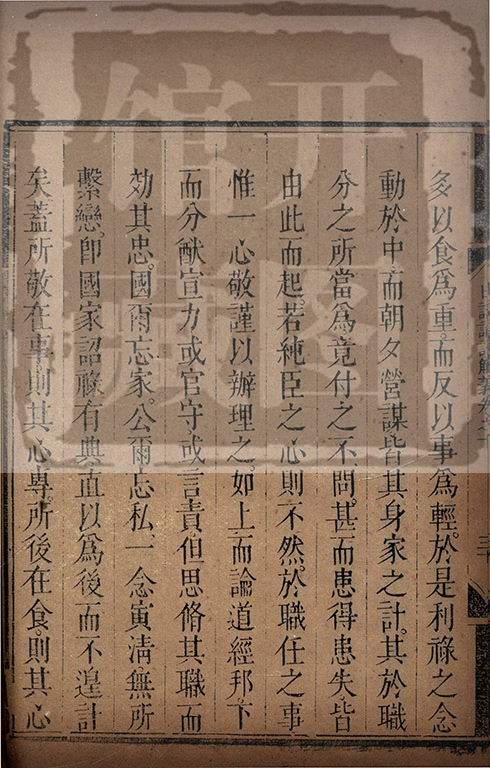 多以食爲重。而反以事爲輕。於是利祿之念
動於中。而朝夕營謀。皆其身家之計。其於職
分之所當爲。竟付之不問。甚而患得患失。皆
由此而起。若純臣之心則不然。於職任之事
惟一心敬謹以辦理之。如上而論道經邦。下
而分猷宣力。或官守或言責。但思脩其職而
効其忠。國爾忘家。公爾忘私。一念寅淸。無所
繫戀。卽國家詔祿有典。直以爲後而不遑計
矣。蓋所敬在事。則其心專。所後在食。則其心